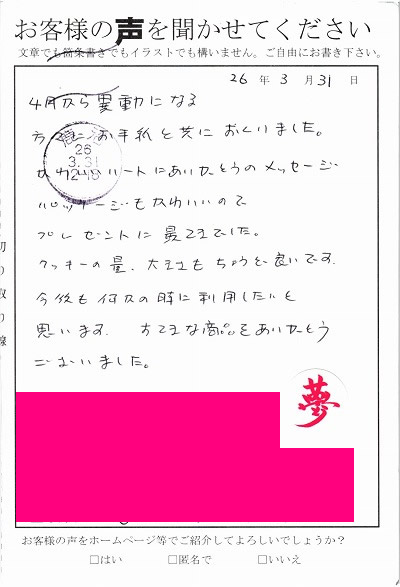 お客様の声を聞かせてください
文章でも箇条書きでもイラストでも構いません。ご自由にお書き下さい。
26年3月31日
4月から異動になる
方々にお手紙と共におくりました。
かわいいハートにありがとうのメッセージ
パッケージもかわいいので
プレゼントに最適でした。
クッキーの量、大きさもちょうど良いです。
今後も何かの時に利用したいと
思います。すてきな商品をありがとう
ございました。
26
3.31
夢
切り取り線
お客様の声をホームページ等でご紹介してよろしいでしょうか？
□はい □匿名で □いいえ